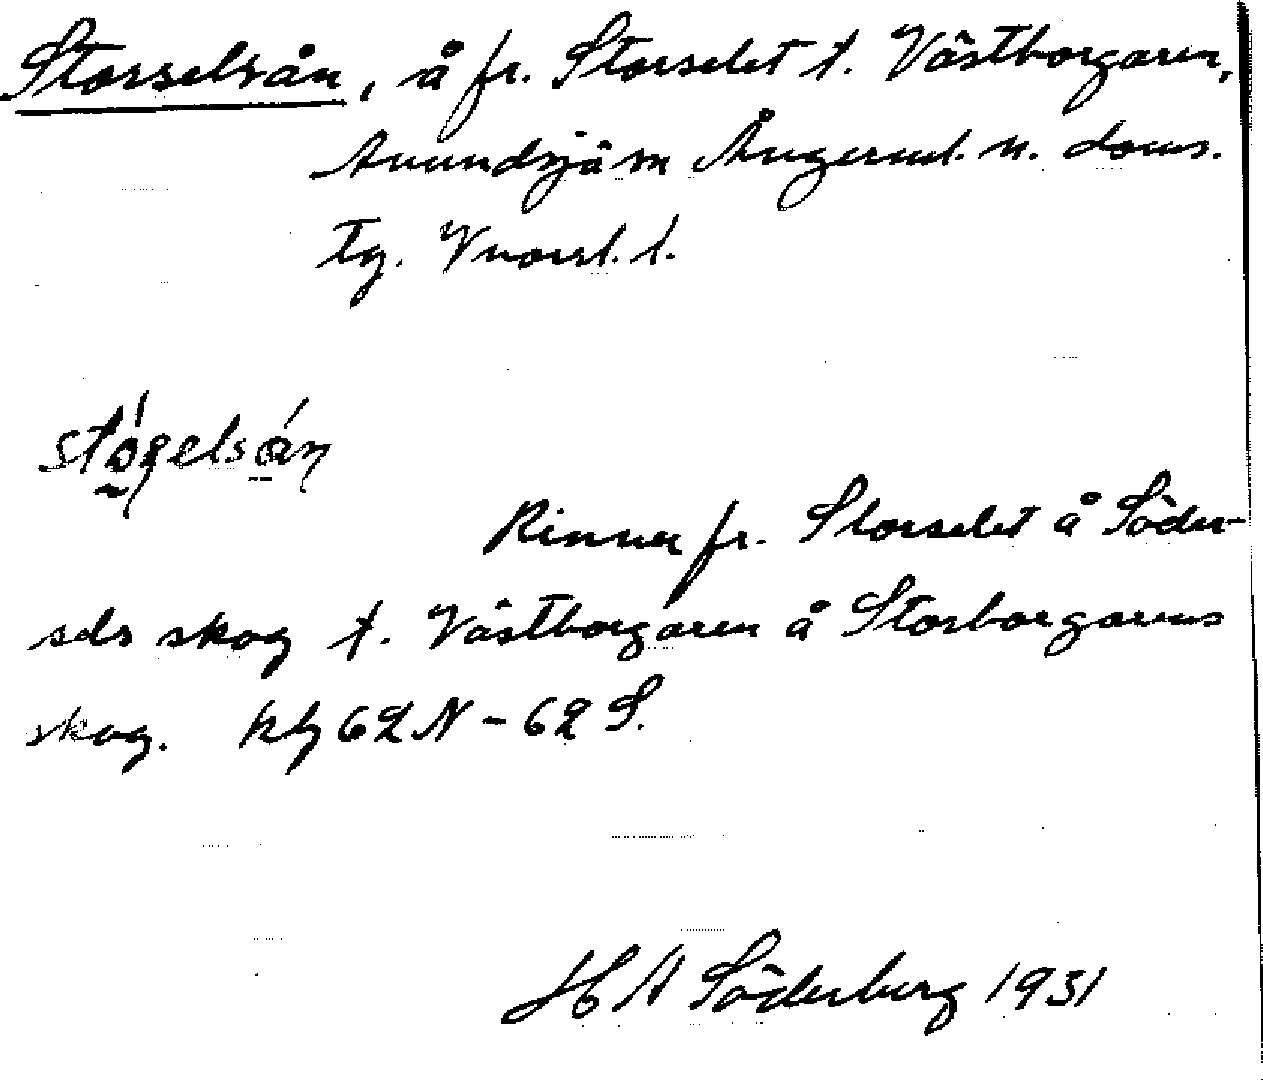 Storselsån, å fr. Storselet t. Västborgaren,
Anundsjö sn Ångerml. n. doms.
Tg. Vnorrl. l.
Rinner fr. Storselet å Söder-
sels skog t. Västborgaren å Storborgarens
skog. kbl 62 N - 62 S.
H A Söderberg 1931